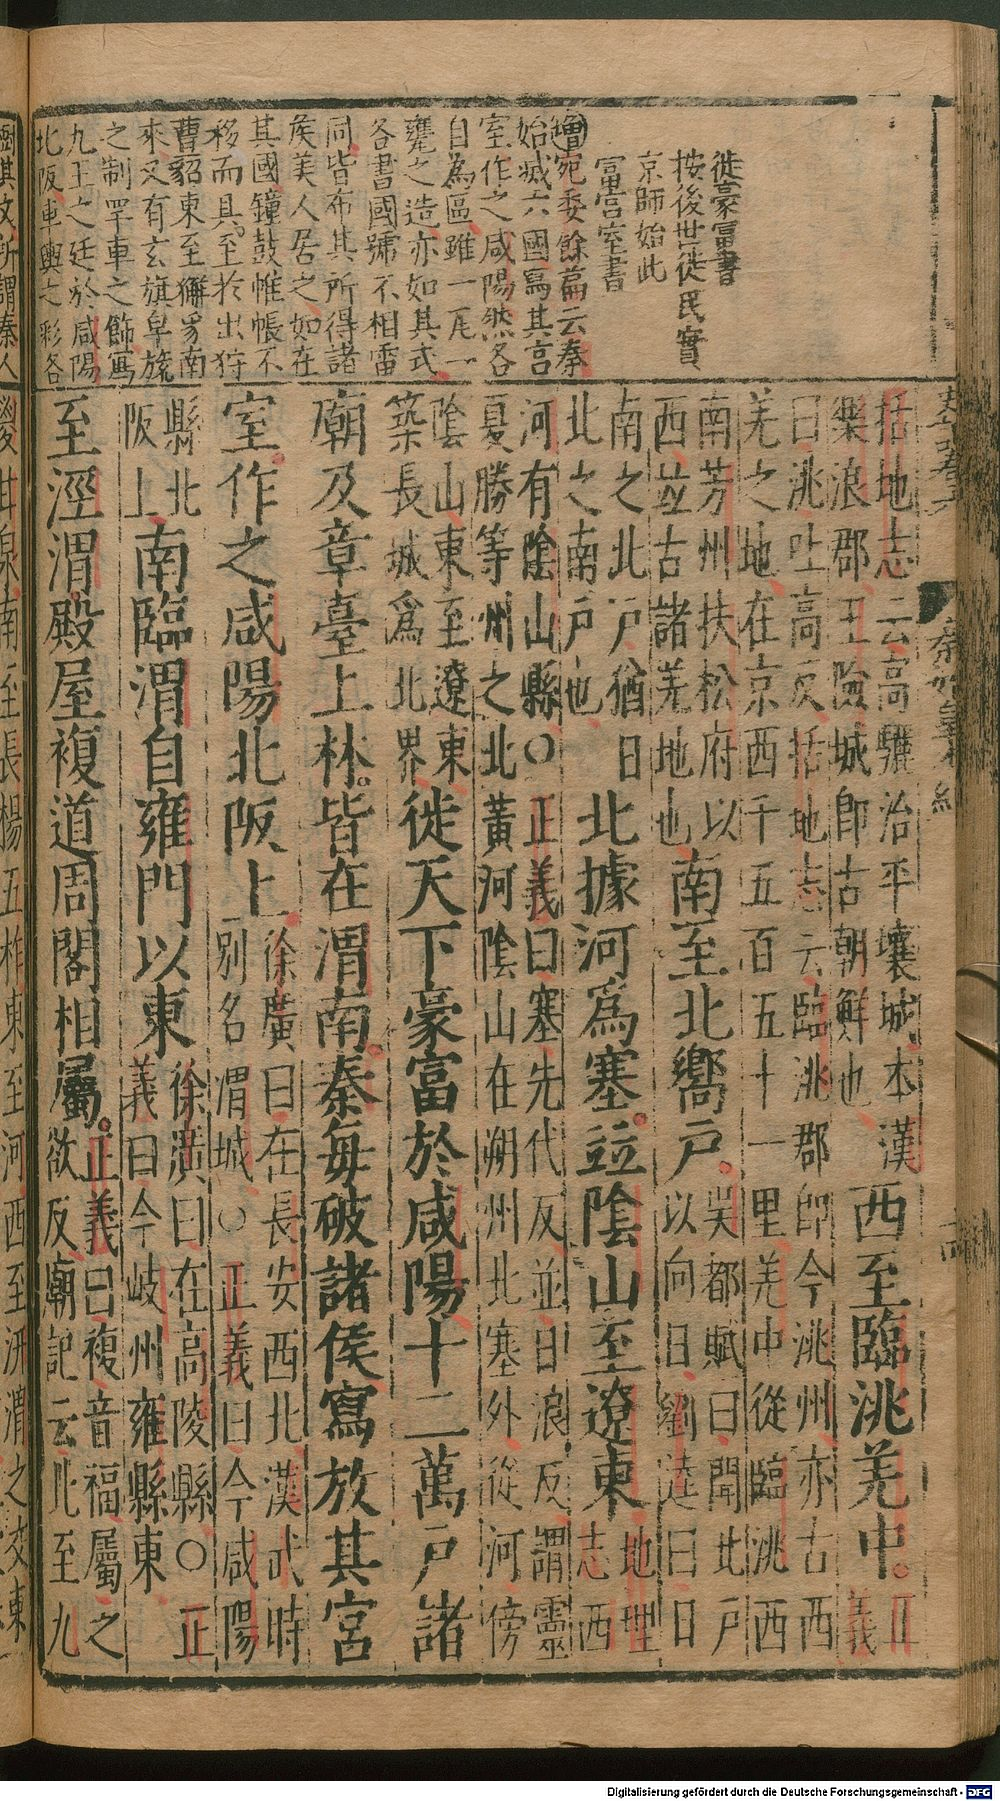 徙豪富書
按後世徙民實
京師始此
富宮室書
增宛委餘篇云秦
始滅六國寫其宮
室作之咸陽然各
自為區雖一瓦一
甓之造亦如其式
各書國號不相雷
同皆布其所得諸
侯美人居之如在
其國鐘鼓帷帳不
移而具至於出狩
曹貂東至獬豸南
來又有玄旗皁旒
之制罕車之飾寫
九王之廷於咸陽
北阪車輿之彩各
括地志云高驪治平壤城本漢
樂浪郡王險城即古朝鮮也
西至臨洮羌中。
正
義
曰洮吐高反括地志云臨洮郡即今洮州亦古西
羌之地在京西千五百五十一里羌中從臨洮西
南芳州扶松府以
西並古諸羌地也
南至北嚮戶。
吳都賦曰開北戶
以向日劉逵曰日
南之北戶猶日
北之南戶也
北據河為塞。並陰山至遼東
地理
志西
河有陰山縣○正義曰塞先代反並白浪反謂靈
夏勝等州之北黃河陰山在朔州北塞外從河傍
陰山東至遼東
築長城為北界
徙天下豪富於咸陽十二萬戶諸
廟及章臺上林。皆在渭南。秦每破諸侯寫放其宮
室。作之咸陽北阪上。
徐廣曰在長安西北漢武時
別名渭城○正義曰今咸陽
縣北
阪上
南臨渭自雍門以東
徐廣曰在高陵縣○正
義曰今岐州雍縣東
至涇渭。殿屋複道周閣相屬。
正義曰複音福屬之
欲反廟記云北至九
嵕甘泉南至長楊五柞東至河西至汧渭之交東
Digitalisierung gefördert durch die Deutsche Forschungsgemeinschaft - DFG